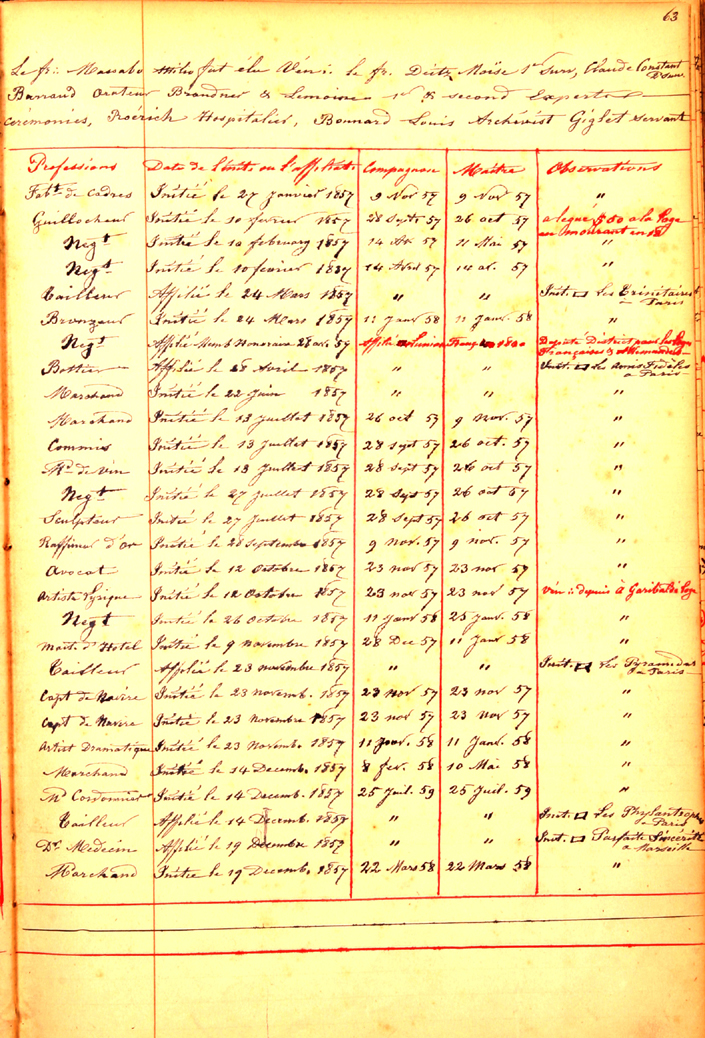 63
Le fr∴ Massabo fut élu Vén∴ le fr. Dietz Moïse 1er Surv, Claude Constant
2e Surv
Barraud Orateur Brandner & Lemoine 1er & second Experts
Cérémonies, Hospitalier, Bonnard Louis Archiviste Giglet Servant
Professions Date de l'Initn ou l'affiliatn Compagnon Maître Observations
Fabt. de Cadres Initié le 27 Janvier 1857 9 Nov 57 9 Nov 57 "
Guillocheur Initié le 10 fevrier 1857 28 Septr 57 26 oct 57 a legué 500 a la Loge
en mourant en 18
Negt Initié le 10 february 1857 14 57 11 Mai 57 "
Negt Initié le 10 fevrier 1857 14 Avril 57 14 57 "
Tailleur Affilié le 24 Mars 1857 " " Init. ▭ Les Trinitaires
a Paris
Bronzeur Initié le 24 Mars 1857 11 Janv 58 11 Janv. 58 "
Negt Affilié Memb Honoraire 28 57 Affilié Lunion Française 1800 Deputé District pour les Loges
Françaises & Allemandes
Bottier Affilié le 28 Avril 1857 " " Init. ▭ Les Amis Fidèles
a Paris
Marchand Initié le 22 Juin 1857 " " "
Marchand Initié le 13 Juillet 1857 26 oct 57 9 Nov. 57 "
Commis Initié le 13 Juillet 1857 28 sept 57 26 oct. 57 "
Md. de Vin Initié le 13 Juillet 1857 28 sept 57 26 oct 57 "
Negt Initié le 27 Juillet 1857 28 Sept 57 26 oct 57 "
Sculpteur Initié le 27 Juillet 1857 28 Sept 57 26 oct 57 "
Raffineur d'or Initié le 28 Septembre 1857 9 nov. 57 9 nov. 57 "
Avocat Initié le 12 Octobre 1857 23 nov 57 23 nov 57 "
Artiste lyrique Initié le 12 Octobre 1857 23 nov 57 23 nov 57 vén∴ depuis à Garibaldi Loge
Negt Initié le 26 Octobre 1857 11 Janv 58 25 Janv. 58 "
Mait. d'Hotel Initié le 9 Novembre 1857 28 Dec 57 11 Janv 58 "
Tailleur Affilié le 23 novembre 1857 " " Init. ▭ Les Pyramides
a Paris
Capt de Navire Initié le 23 novemb. 1857 23 nov 57 23 nov 57 "
Capt de Navire Initié le 23 novembre 1857 23 nov 57 23 nov 57 "
Artist Dramatique Initié le 23 Novemb. 1857 11 Janv. 58 11 Janv. 58 "
Marchand Initié le 14 Decemb. 1857 8 fev. 58 10 Mai 58 "
Md Cordonnier Initié le 14 Decemb. 1857 25 Juil. 59 25 Juil. 59 "
Tailleur Affilié le 14 Decemb. 1857 " " Init. ▭ Les Phylantropes
a Paris
Dr. Medecin Affilié le 19 Decembre 1857 " " Init. ▭ Parfaite Sincérité
a Marseille
Marchand Initié le 19 Decemb. 1857 22 Mars 58 22 Mars 58 "